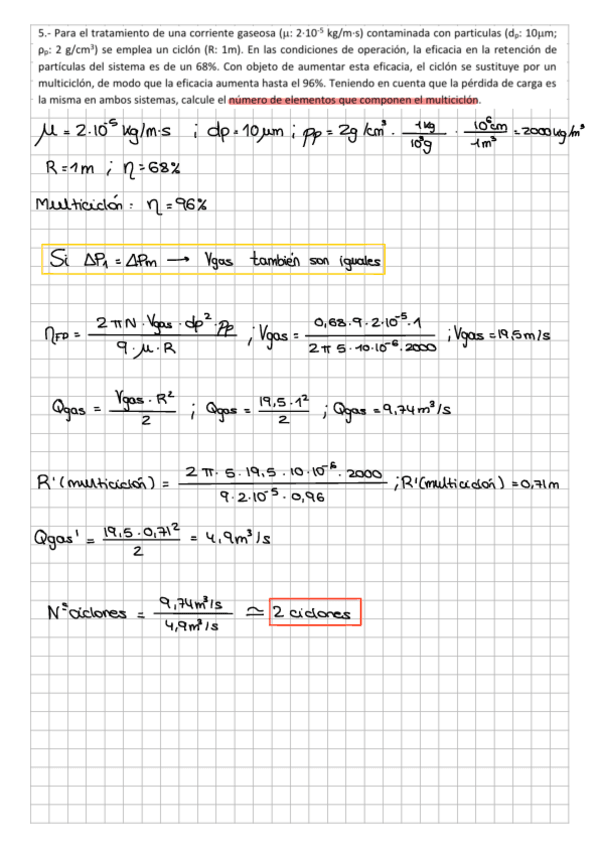 5.- Para el tratamiento de una corriente gaseosa (μ: 2·10⁻⁵ kg/m·s) contaminada con partículas (dₚ: 10μm;
ρₚ: 2 g/cm³) se emplea un ciclón (R: 1m). En las condiciones de operación, la eficacia en la retención de
partículas del sistema es de un 68%. Con objeto de aumentar esta eficacia, el ciclón se sustituye por un
multiciclón, de modo que la eficacia aumenta hasta el 96%. Teniendo en cuenta que la pérdida de carga es
la misma en ambos sistemas, calcule el número de elementos que componen el multiciclón.
μ = 2·10⁻⁵ kg/m·s ; dp = 10μm ; ρp = 2g/cm³ · 1kg/10³g · 10⁶cm/1m³ = 2000kg/m³
R = 1m ; η = 68%
Multiciclón: η = 96%
Si ΔP₁ = ΔPm → Vgas también son iguales
ηFD = 2πN·Vgas·dp²·ρp / 9·μ·R ; Vgas = 0,68·9·2·10⁻⁵·1 / 2π5·10·10⁻⁶·2000 ; Vgas = 19,5m/s
Qgas = Vgas·R² / 2 ; Qgas = 19,5·1² / 2 ; Qgas = 9,74m³/s
R'(multiciclón) = 2π·5·19,5·10·10⁻⁶·2000 / 9·2·10⁻⁵·0,96 ; R'(multiciclón) = 0,71m
Qgas' = 19,5·0,71² / 2 = 4,9m³/s
Nº ciclones = 9,74m³/s / 4,9m³/s ≃ 2 ciclones